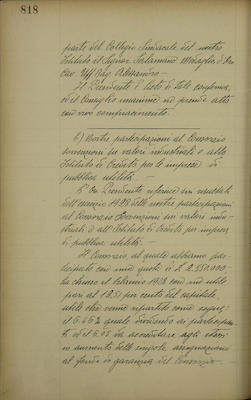 818
parte del Collegio Sindacale del nostro
Istituto il Signor
Cav. Uff. Rag. Alessandro
Il Presidente è lieto di tale conferma,
ed il Consiglio unanime ne prende atto
con vivo compiacimento.
6) Nostre partecipazioni al Consorzio
sovvenzioni su valori industriali e allo
Istituto di Credito per le imprese di
pubblica utilità. -
Il Presidente riferisce sui risultati
dell'esercizio 1928 delle nostre partecipazioni
al Consorzio Sovvenzioni sui valori indu-
striali e all'Istituto di Credito per imprese
di pubblica utilità. -
Il Consorzio, al quale abbiamo par-
tecipato con una quota di L. 2.550.000,
ha chiuso il bilancio 1928 con un utile
pari al 12.51 per cento del capitale,
utile che venne ripartito come segue:
il 6.46% quale dividendo ai partecipan-
ti ed il 6.05 da accreditare agli stessi
in aumento delle singole assegnazioni
al fondo di garanzia del Consorzio. -